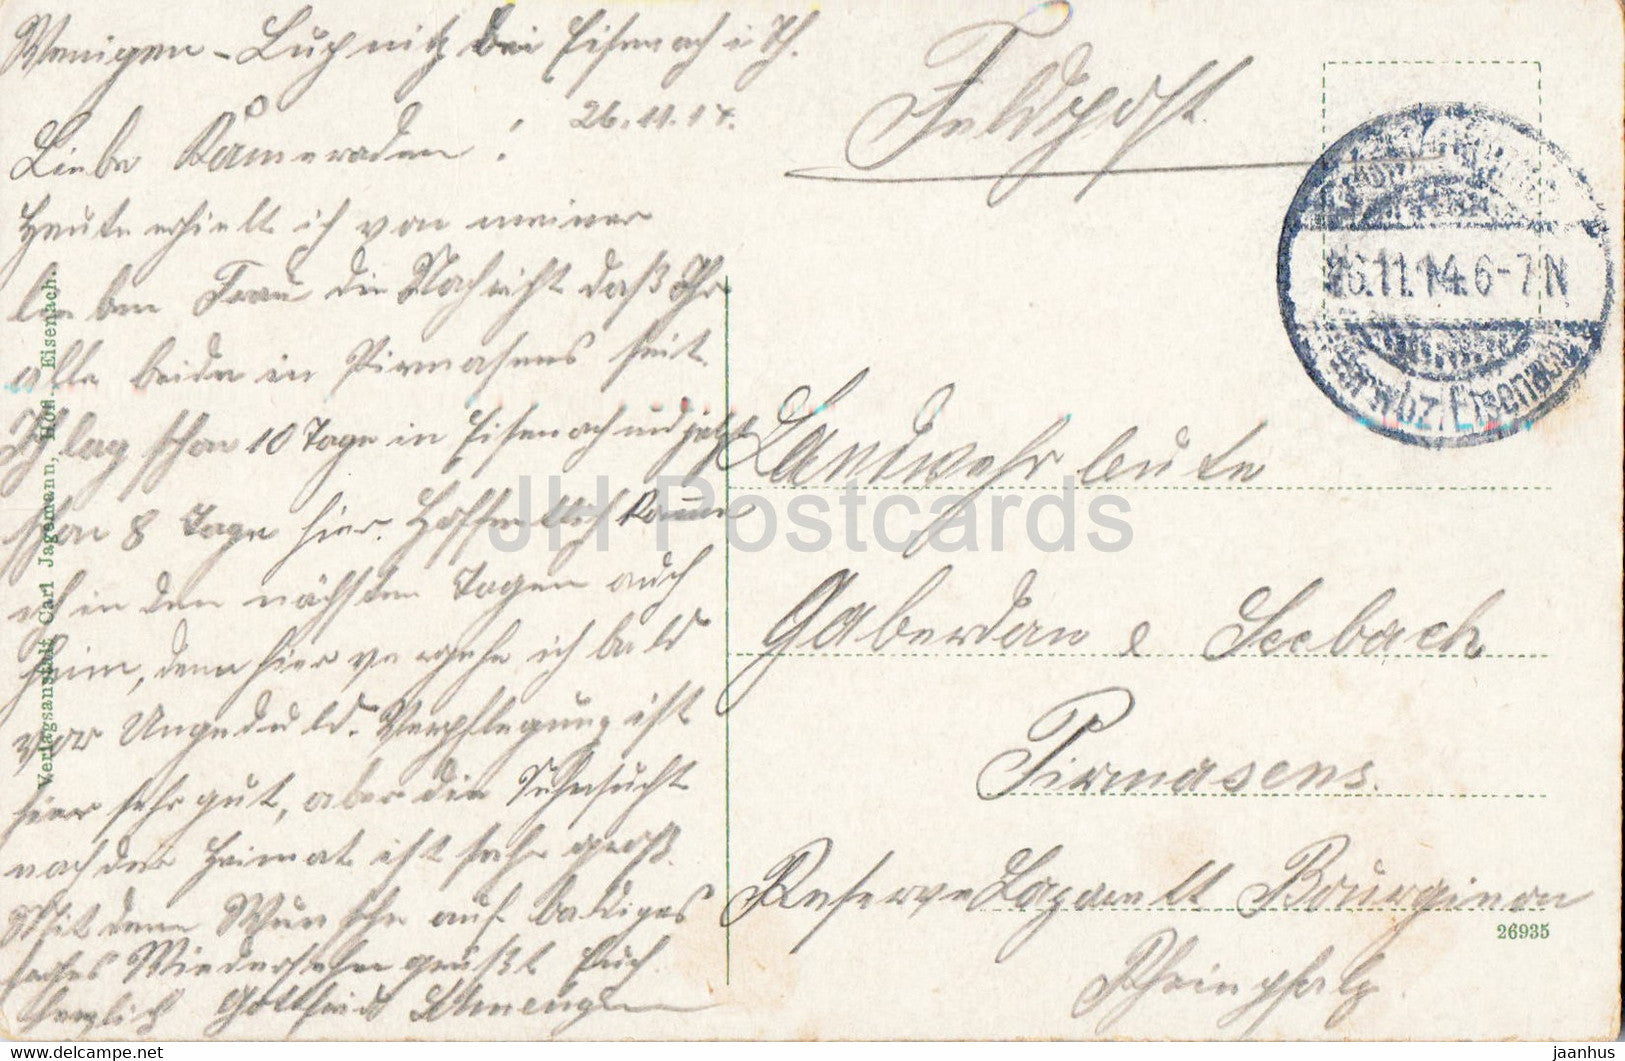 Wenigen-Lupnitz bei Eisenach i Th.
26.11.14.
Liebe Kameraden!
Heute erhielt ich von meiner
lieben Frau die Nachricht daß Ihr
alle beide in Pirmasens seit.
Ich lag schon 10 Tage in Eisenach und jetzt
schon 8 Tage hier. Hoffentlich komme
ich in den nächsten Tagen auch
heim, denn hier vergehe ich bald
vor Ungeduld. Verpflegung ist
hier sehr gut, aber die Sehnsucht
nach der Heimat ist sehr groß.
Mit dem Wunsche auf baldiges
Wiedersehen grüßt Euch
herzlich Gottfried
Feldpost
26.11.14.6-7N
Eisenach
Landwehrleute
Gaberdan & Seebach
Pirmasens.
Reserve Lazarett Bourginon
Rheinpfalz.
26935
Verlagsanstalt Carl Jagemann, Hofl. Eisenach.
JH Postcards
jaanhus